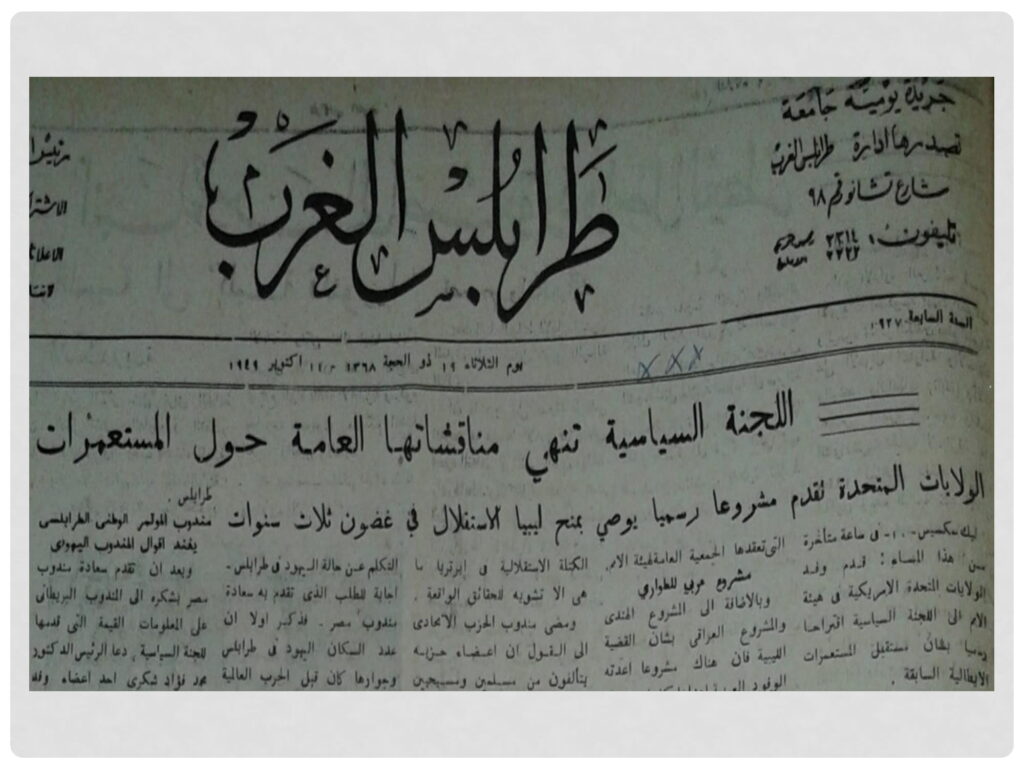 طرابلس الغرب
جريدة يومية جامعة
تصدرها ادارة طرابلس الغرب
شارع تشانو رقم ٩٨
تليفون:
السنة السابعة
يوم الثلاثاء ١٩ ذو الحجة ١٣٦٨ - ١١ اكتوبر ١٩٤٩
XXX
اللجنة السياسية تنهي مناقشاتها العامة حول المستعمرات
الولايات المتحدة تقدم مشروعا رسميا يوصي بمنح ليبيا الاستقلال في غضون ثلاث سنوات
ليك سكسيس - ١٠ - فى ساعة متأخرة
من هذا المساء: قدم وفد
الولايات المتحدة الامريكية فى هيئة
الامم الى اللجنة السياسية اقتراحا
رسميا بشأن مستقبل المستعمرات
الايطالية السابقة .
التى تعقدها الجمعية العامة لهيئة الامم.
مشروع عربي للطوارئ
وبالاضافة الى المشروع الهندى
والمشروع العراقى بشأن القضية
الليبية فان هناك مشروعا اعدته
الكتلة الاستقلالية فى ايرتريا ما
هى الا تشويه للحقائق الواقعة .
ومضى مندوب الحزب الاتحادى
الى القول ان اعضاء حزبه
يتألفون من مسلمين ومسيحيين
التكلم عن حالة اليهود فى طرابلس -
اجابة للطلب الذى تقدم به سعادة
مندوب مصر . فذكر اولا ان
عدد السكان اليهود فى طرابلس
وجوارها كان قبل الحرب العالمية
طرابلس.
مندوب المؤتمر الوطنى الطرابلسى
يفند اقوال المندوب اليهودى
وبعد ان تقدم سعادة مندوب
مصر بشكره الى المندوب البريطانى
على المعلومات القيمة التى قدمها
للجنة السياسية . دعا الرئيس الدكتور
محمد فؤاد شكرى احد اعضاء وفد